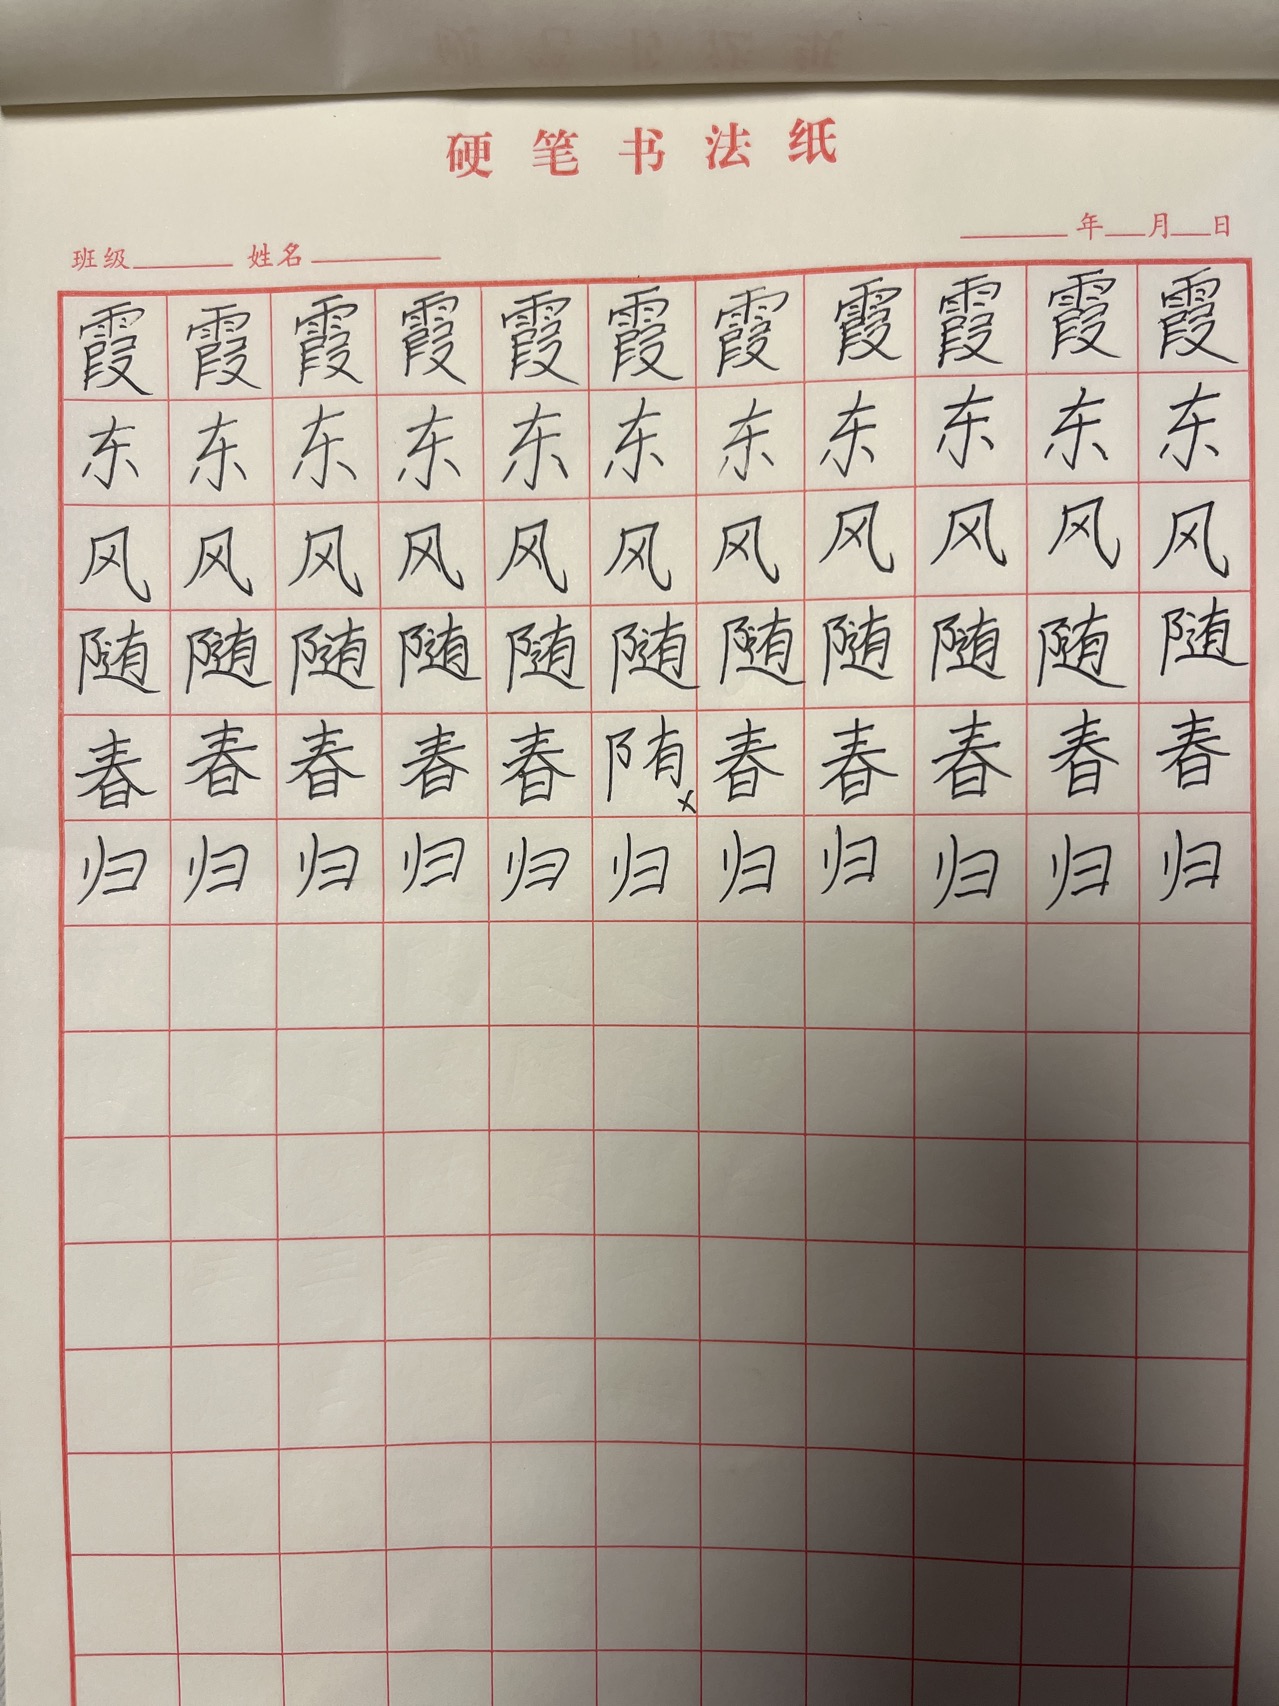 硬笔书法纸
班级 姓名 年 月 日
霞霞霞霞霞霞霞霞霞霞霞
东东东东东东东东东东东
风风风风风风风风风风风
随随随随随随随随随随随
春春春春春陏x春春春春春
归归归归归归归归归归归